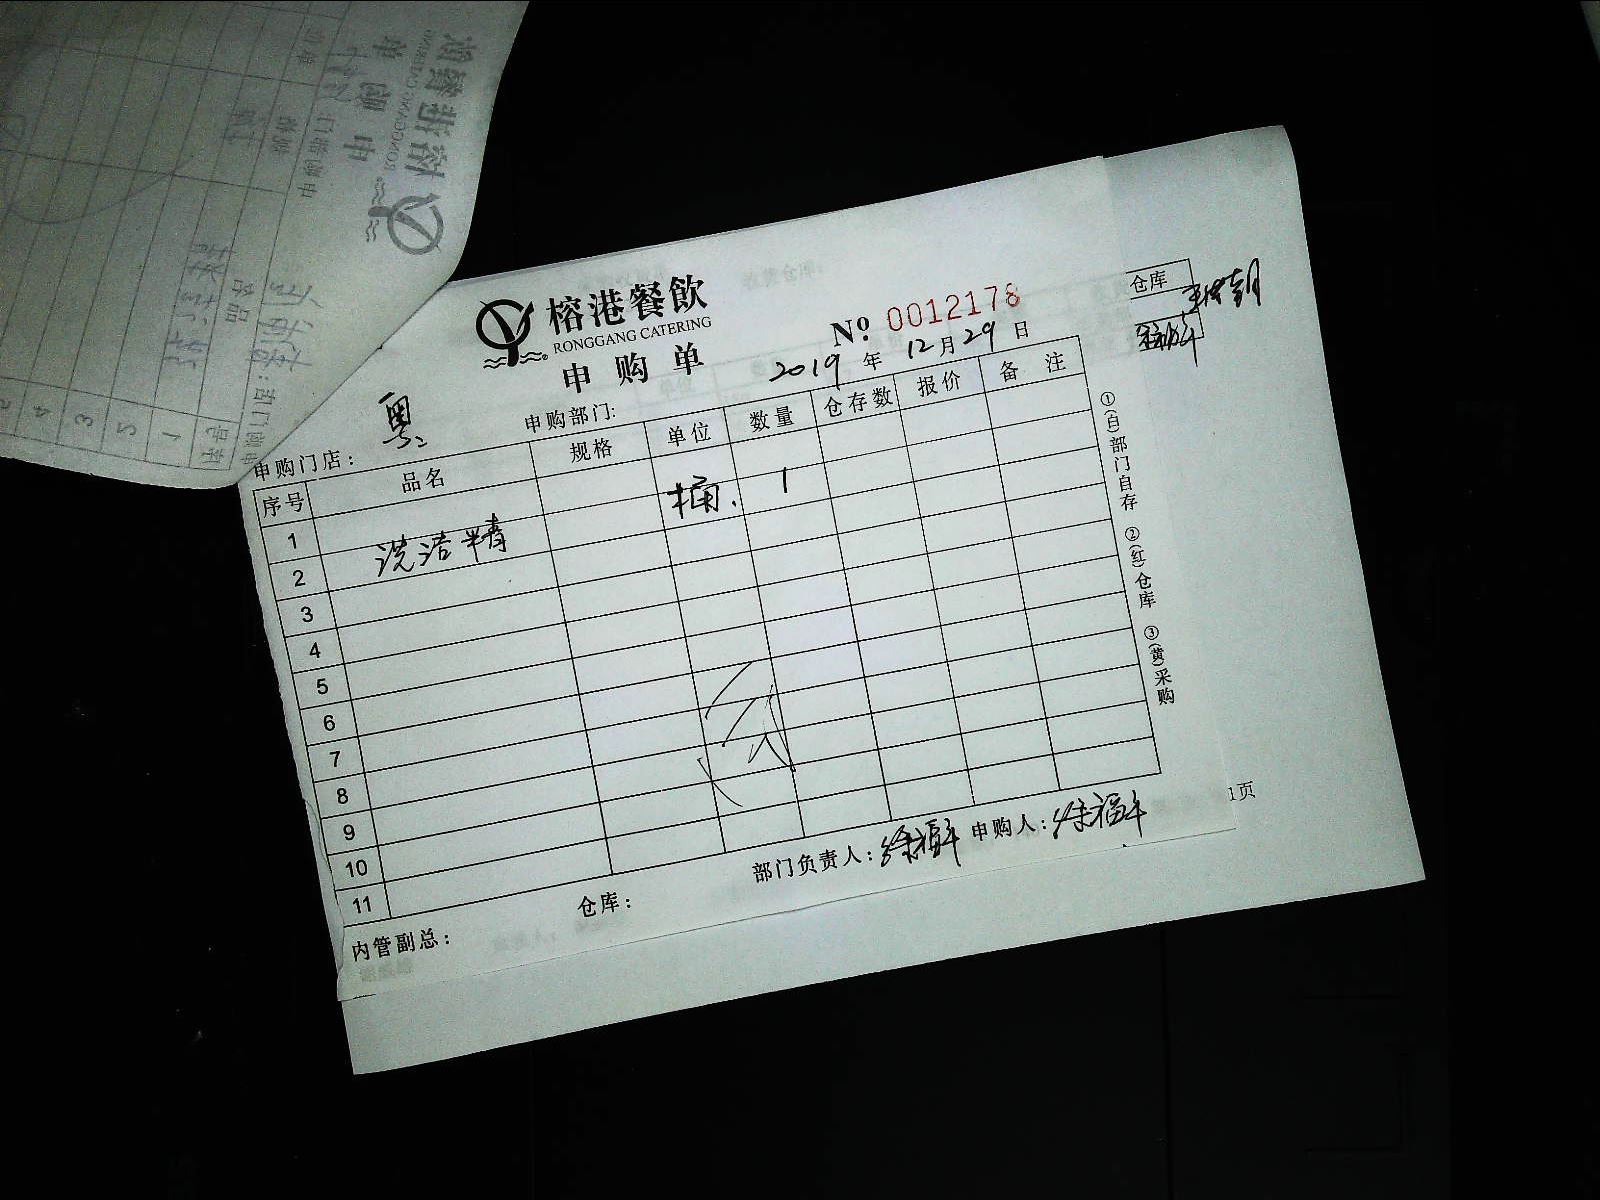 榕港餐飲
RONGGANG CATERING
申购单
№ 0012178
2019 年 12 月 29 日
申购门店： 粤二
申购部门:
序号 品名 规格 单位 数量 仓存数 报价 备注
1 洗洁精 桶. 1
2
3
4
5
6
7
8
9
10
11
内管副总：
仓库：
部门负责人：徐福平
申购人：徐福平
①(白)部门自存 ②(红)仓库 ③(黄)采购
仓库
1页